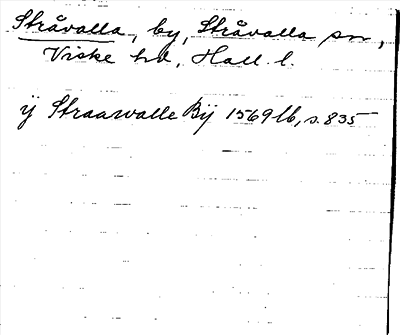 Stråvalla, by, Stråvalla sn,
Viske hd, Hall. l.
ÿ Straawalle Bÿ 1569 lb, s. 835